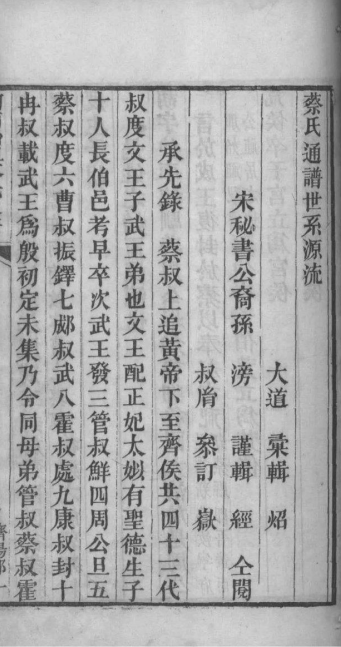 蔡氏通譜世系源流
大道 彚輯 炤
宋秘書公裔孫 滂 謹輯 經 仝閱
叔脣 叅訂 嶽
承先錄 蔡叔上追黃帝下至齊侯共四十三代
叔度文王子武王弟也文王配正妃太姒有聖德生子
十人長伯邑考早卒次武王發三管叔鮮四周公旦五
蔡叔度六曹叔振鐸七郕叔武八霍叔處九康叔封十
冉叔載武王爲殷初定未集乃令同母弟管叔蔡叔霍
濟陽郡